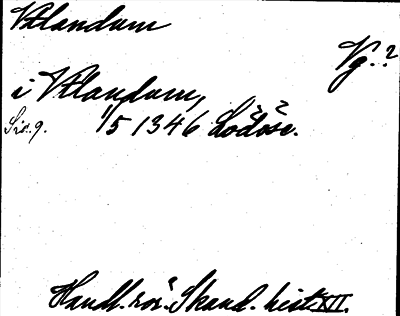 Vtlandum
Vg.?
i Vtlandum,
Sid. 9. 1/5 1346 Lödöse.
Handl. rör. Skand. hist. XII.